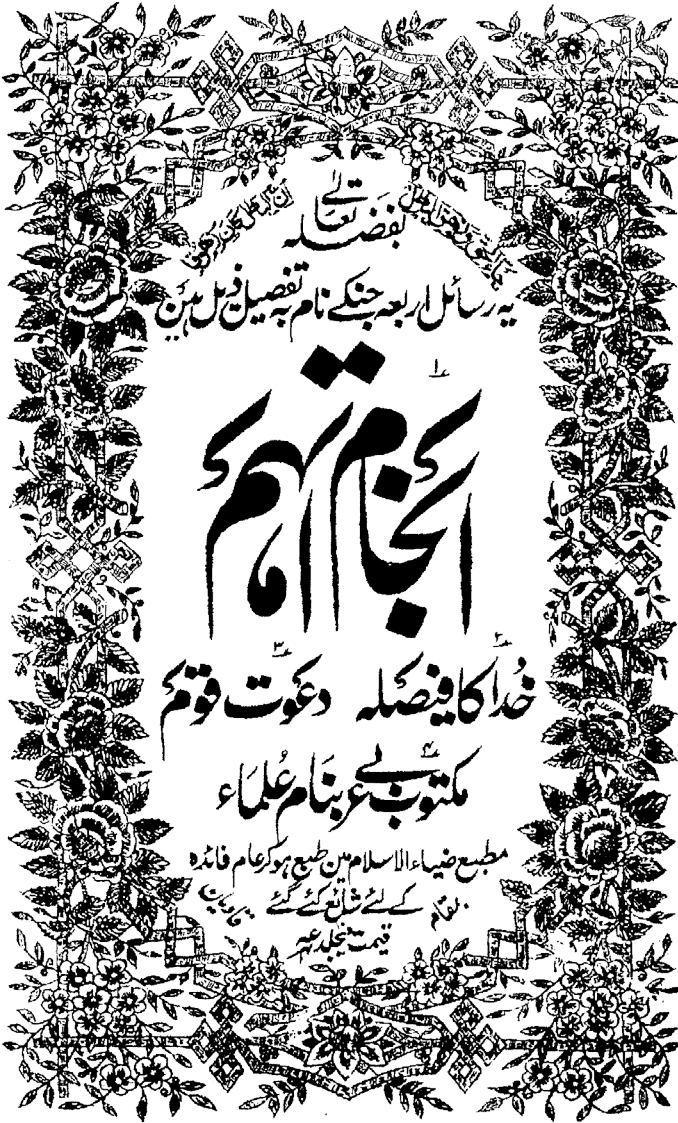 بفضلہ تعالےٰ
یہ رسائل اربعہ جنکے نام بہ تفصیل ذیل ہین
۱
انجام آتھم
۲ ۳
خُدا کا فیصلہ دعوت قوم
۴
مکتوب عربی بنام عُلماء
مطبع ضیاء الاسلام مین طبع ہوکر عام فائدہ
کے لئے شائع کئے گئے
بمقام قادیان
قیمت فیجلد